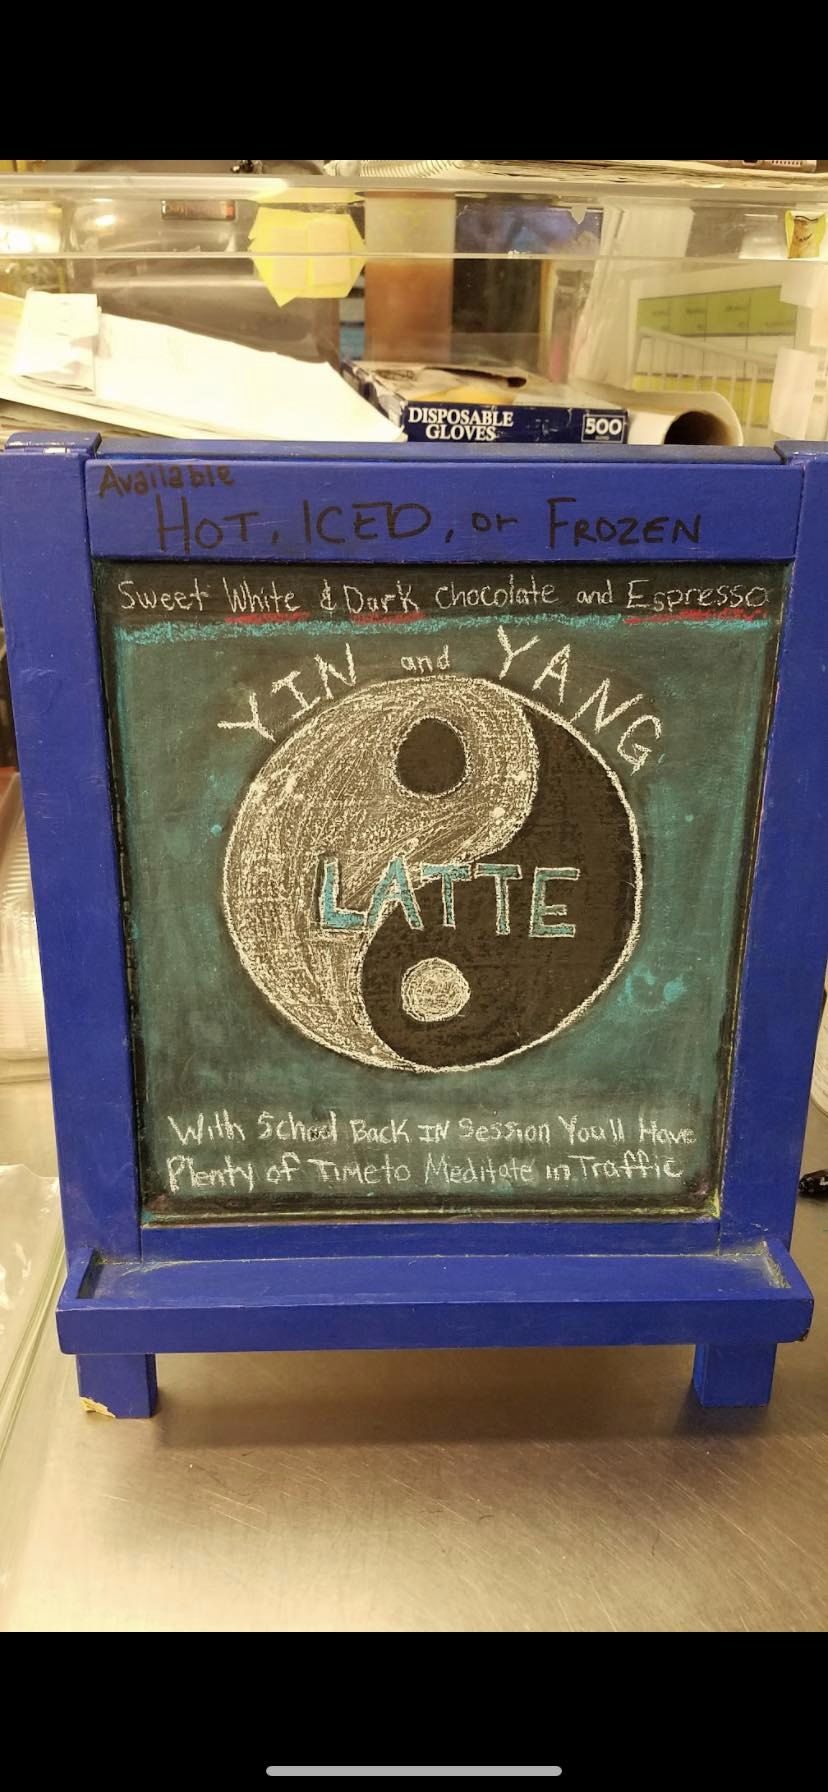 DISPOSABLE
GLOVES
500
Available
HOT, ICED, or FROZEN
Sweet White & Dark chocolate and Espresso
YIN and YANG
LATTE
With School Back IN Session You'll Have
Plenty of Time to Meditate in Traffic